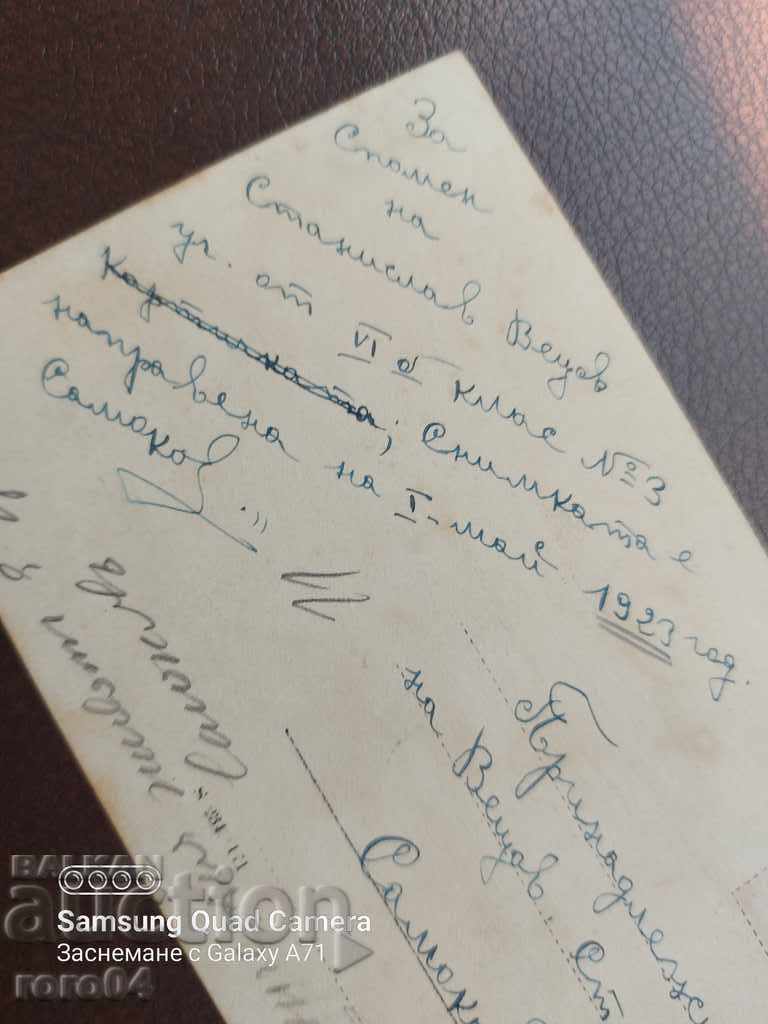 За
Спомен
на
Станислав Вецов
уч. от VI б клас №3
Картичката; Снимката е
направена на I-май 1923 год.
Самоков
Принадлеж
на Вецов. Ст
Самок
Самоков
BALKAN
auction
roro04
Samsung Quad Camera
Заснемане с Galaxy A71